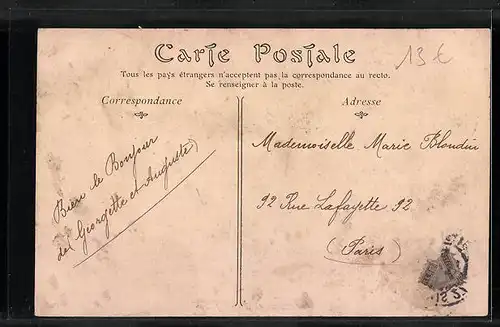 Carte Postale
13 €
Tous les pays étrangers n'acceptent pas la correspondance au recto.
Se renseigner à la poste.
Correspondance
Adresse
Bien le Bonjour
de Georgette et Auguste
Mademoiselle Marie Blondin
92 Rue Lafayette 92
(Paris)